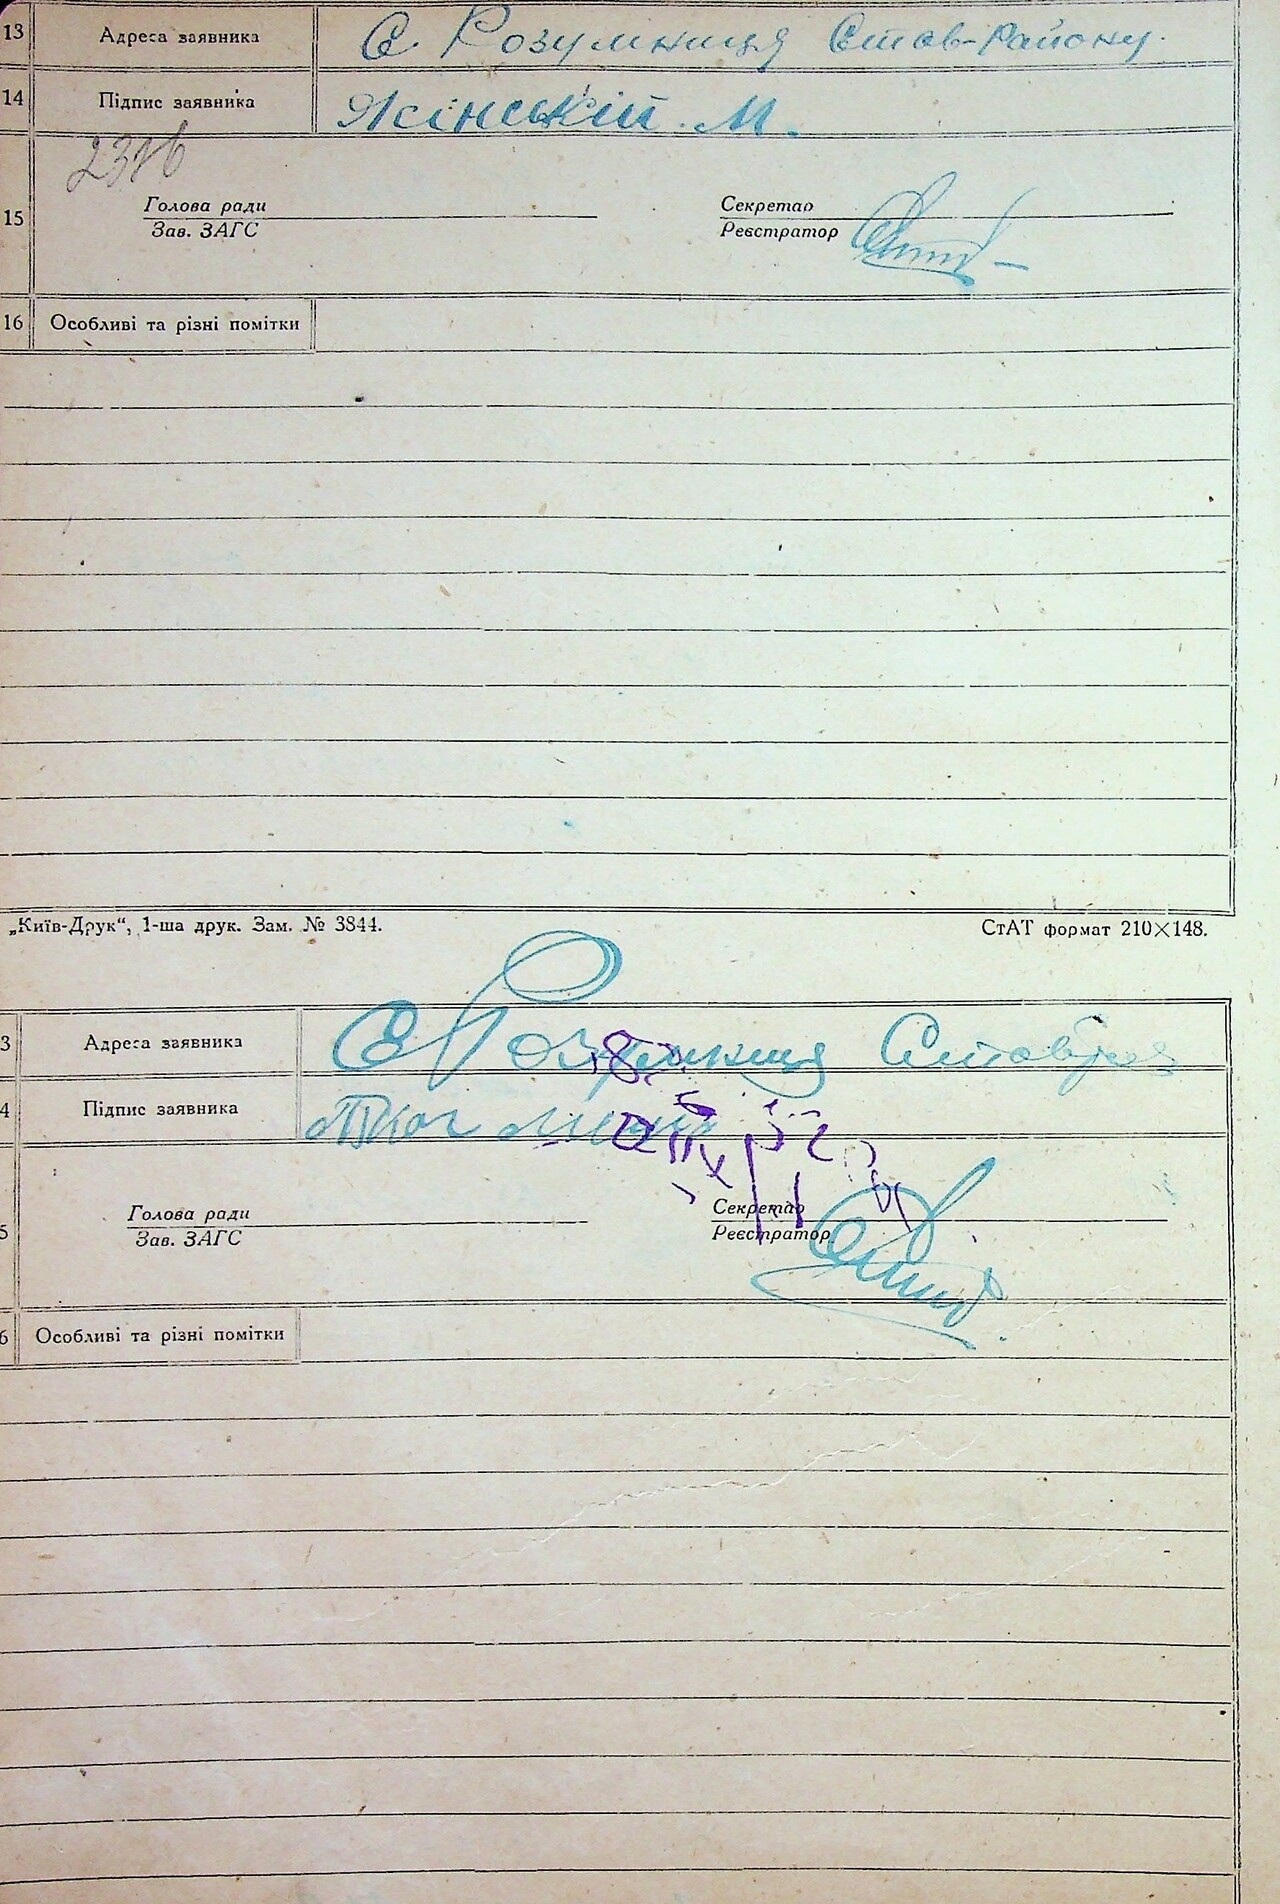 13 Адреса заявника С. Розумниця Став-Району.
14 Підпис заявника Ясінській. М.
231в
15 Голова ради Секретар
Зав. ЗАГС Реєстратор
16 Особливі та різні помітки
„Київ-Друк“, 1-ша друк. Зам. № 3844. СтАТ формат 210×148.
3 Адреса заявника С Розумниця Ставр
4 Підпис заявника
5 Голова ради Секретар
Зав. ЗАГС Реєстратор
6 Особливі та різні помітки